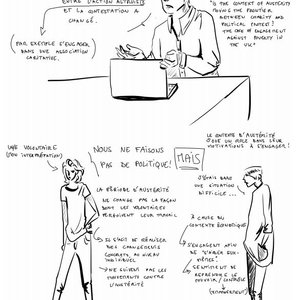 ENTRE L'ACTION
ET LA CONTESTATION A
CHANGÉ.
PAR EXEMPLE S'ENGAGER
DANS UNE ASSOCIATION
CARITATIVE.
IS THE CONTEXT OF AUSTERITY
MOVING THE FRONTIER
BETWEEN CHARITY AND
POLITICAL PROTEST?
THE CASE OF ENGAGEMENT
AGAINST POVERTY IN
THE UK"
UNE VOLONTAIRE
NOUS NE FAISONS
PAS DE POLITIQUE!
MAIS
LE CONTEXTE D'AUSTÉRITÉ
JOUE UN RÔLE DANS LEUR
MOTIVATIONS À S'ENGAGER!
LA PÉRIODE D'AUSTÉRITÉ
NE CHANGE PAS LA FAÇON
DONT LES VOLONTAIRES
PERÇOIVENT LEUR TRAVAIL
J'ÉTAIS DANS
UNE SITUATION
DIFFICILE...
À CAUSE DU
CONTEXTE ÉCONOMIQUE
IL S'AGIT DE RÉALISER
DES CHANGEMENTS
CONCRETS, AU NIVEAU
INDIVIDUEL
S'ENGAGENT AFIN
DE
SENTIMENT DE
REPRENDRE LE
POUVOIR / CONTRÔLE
(EMPOWERMENT)
NE SUIVENT PAS LES
MOUVEMENTS CONTRE
L'AUSTÉRITÉ